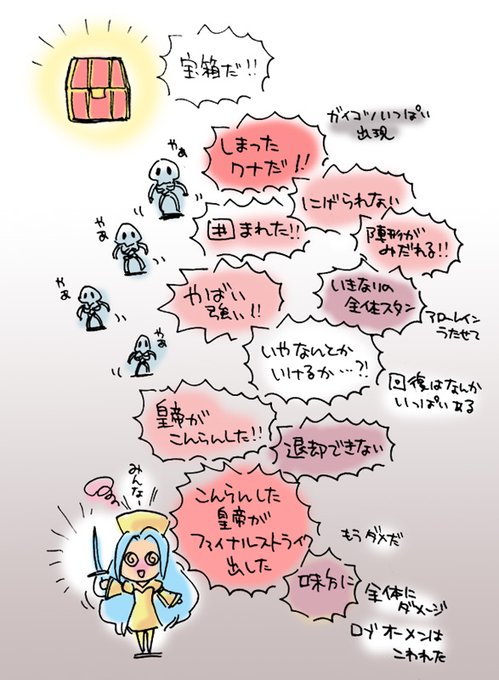 宝箱だ!!
ガイコツいっぱい
出現
しまった
ワナだ!!
やぁ
にげられない
囲まれた!!
やぁ
陣形が
みだれる!!
いきなりの
全体スタン
やばい
強い!!
やぁ
アローレイン
うたせて
いやなんとか
いけるか…?!
回復はなんか
いっぱいある
皇帝が
こんらんした!!
退却できない
みんなー
こんらんした
皇帝が
ファイナルストライク
出した
もうダメだ
味方に
全体に
ダメージ
ロブオーメンは
こわれた